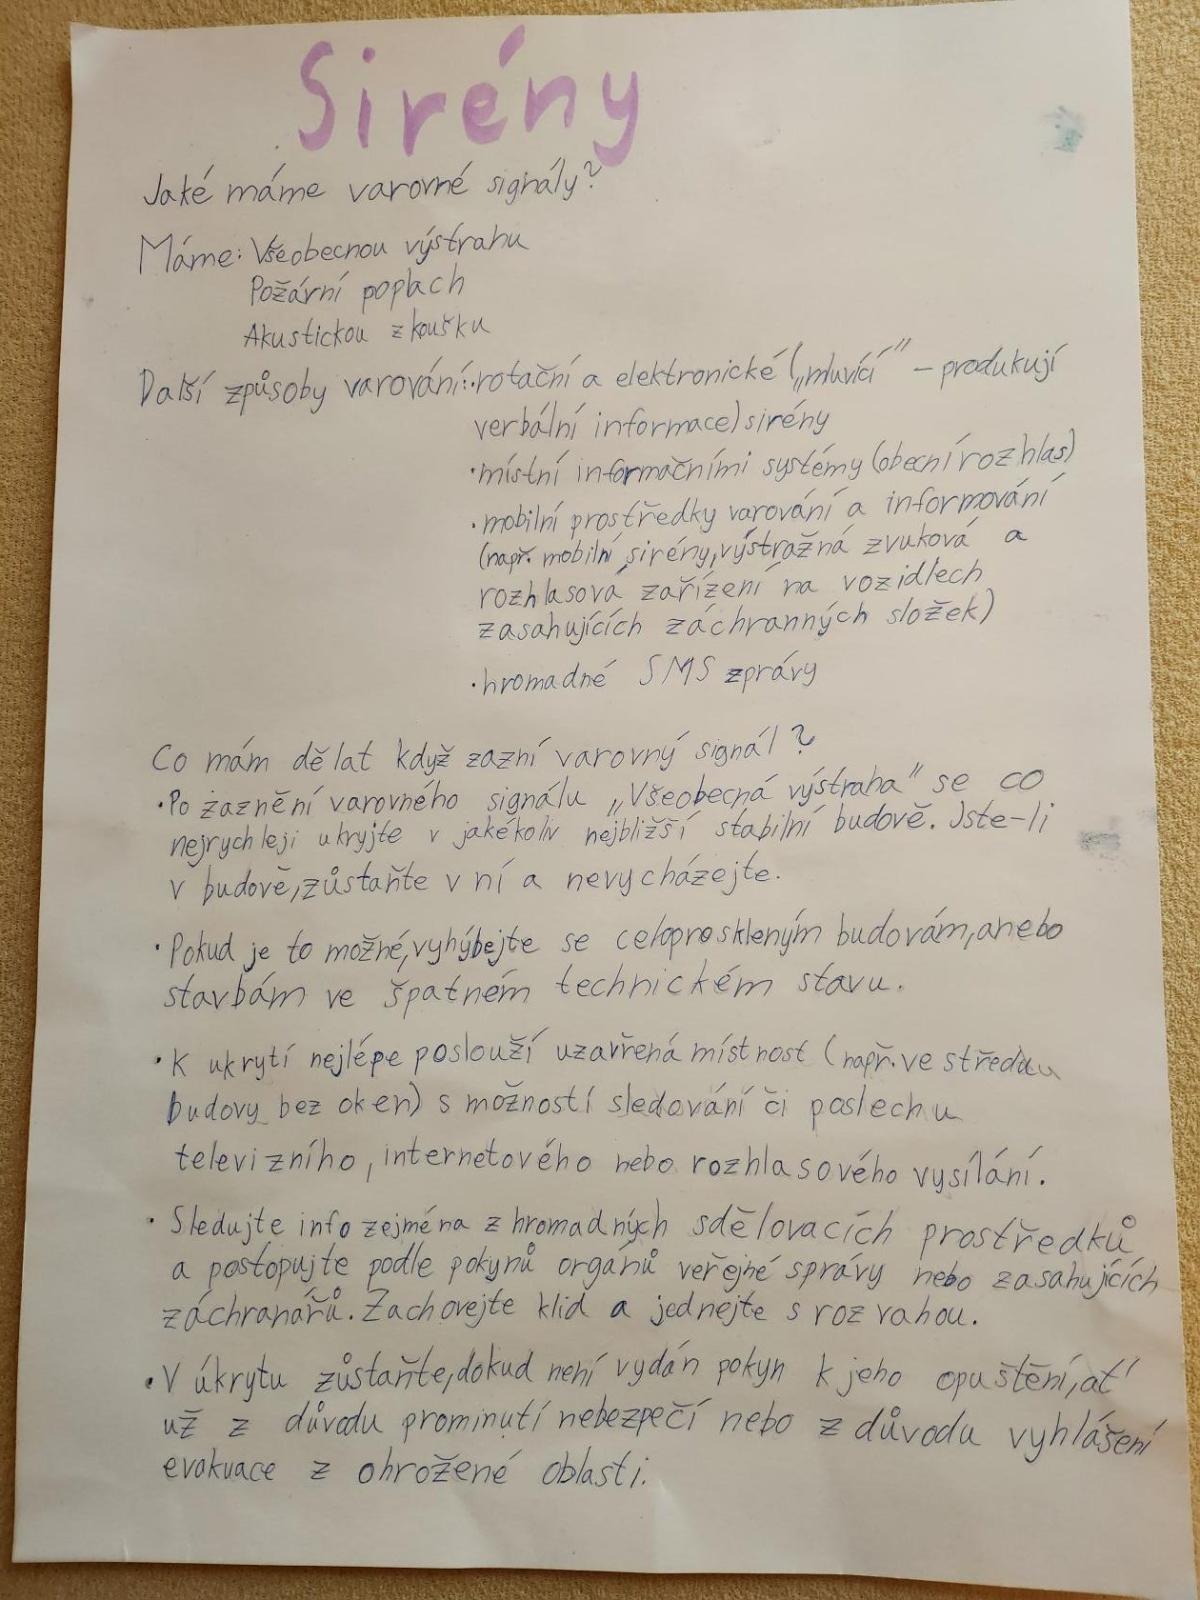 Sirény
Jaké máme varovné signály?
Máme: Všeobecnou výstrahu
Požární poplach
Akustickou zkoušku
Další způsoby varování: ·rotační a elektronické („mluvící“ – produkují
verbální informace) sirény
·místní informačními systémy (obecní rozhlas)
·mobilní prostředky varování a informování
(např. mobilní sirény, výstražná zvuková a
rozhlasová zařízení na vozidlech
zasahujících záchranných složek)
·hromadné SMS zprávy
Co mám dělat když zazní varovný signál?
·Po zaznění varovného signálu „Všeobecná výstraha“ se co
nejrychleji ukryjte v jakékoliv nejbližší stabilní budově. Jste-li
v budově, zůstaňte v ní a nevycházejte.
·Pokud je to možné, vyhýbejte se celoproskleným budovám, anebo
stavbám ve špatném technickém stavu.
·K ukrytí nejlépe poslouží uzavřená místnost (např. ve středu
budovy bez oken) s možností sledování či poslechu
televizního, internetového nebo rozhlasového vysílání.
·Sledujte info zejména z hromadných sdělovacích prostředků
a postopujte podle pokynů orgánů veřejné správy nebo zasahujících
záchranářů. Zachovejte klid a jednejte s rozvahou.
·V úkrytu zůstaňte, dokud není vydán pokyn k jeho opuštění, ať
už z důvodu prominutí nebezpečí nebo z důvodu vyhlášení
evakuace z ohrožené oblasti.